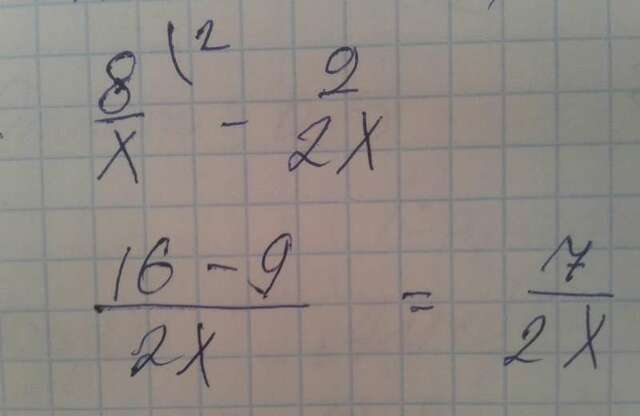 8/x \2 - 9/2x
16-9/2x = 7/2x